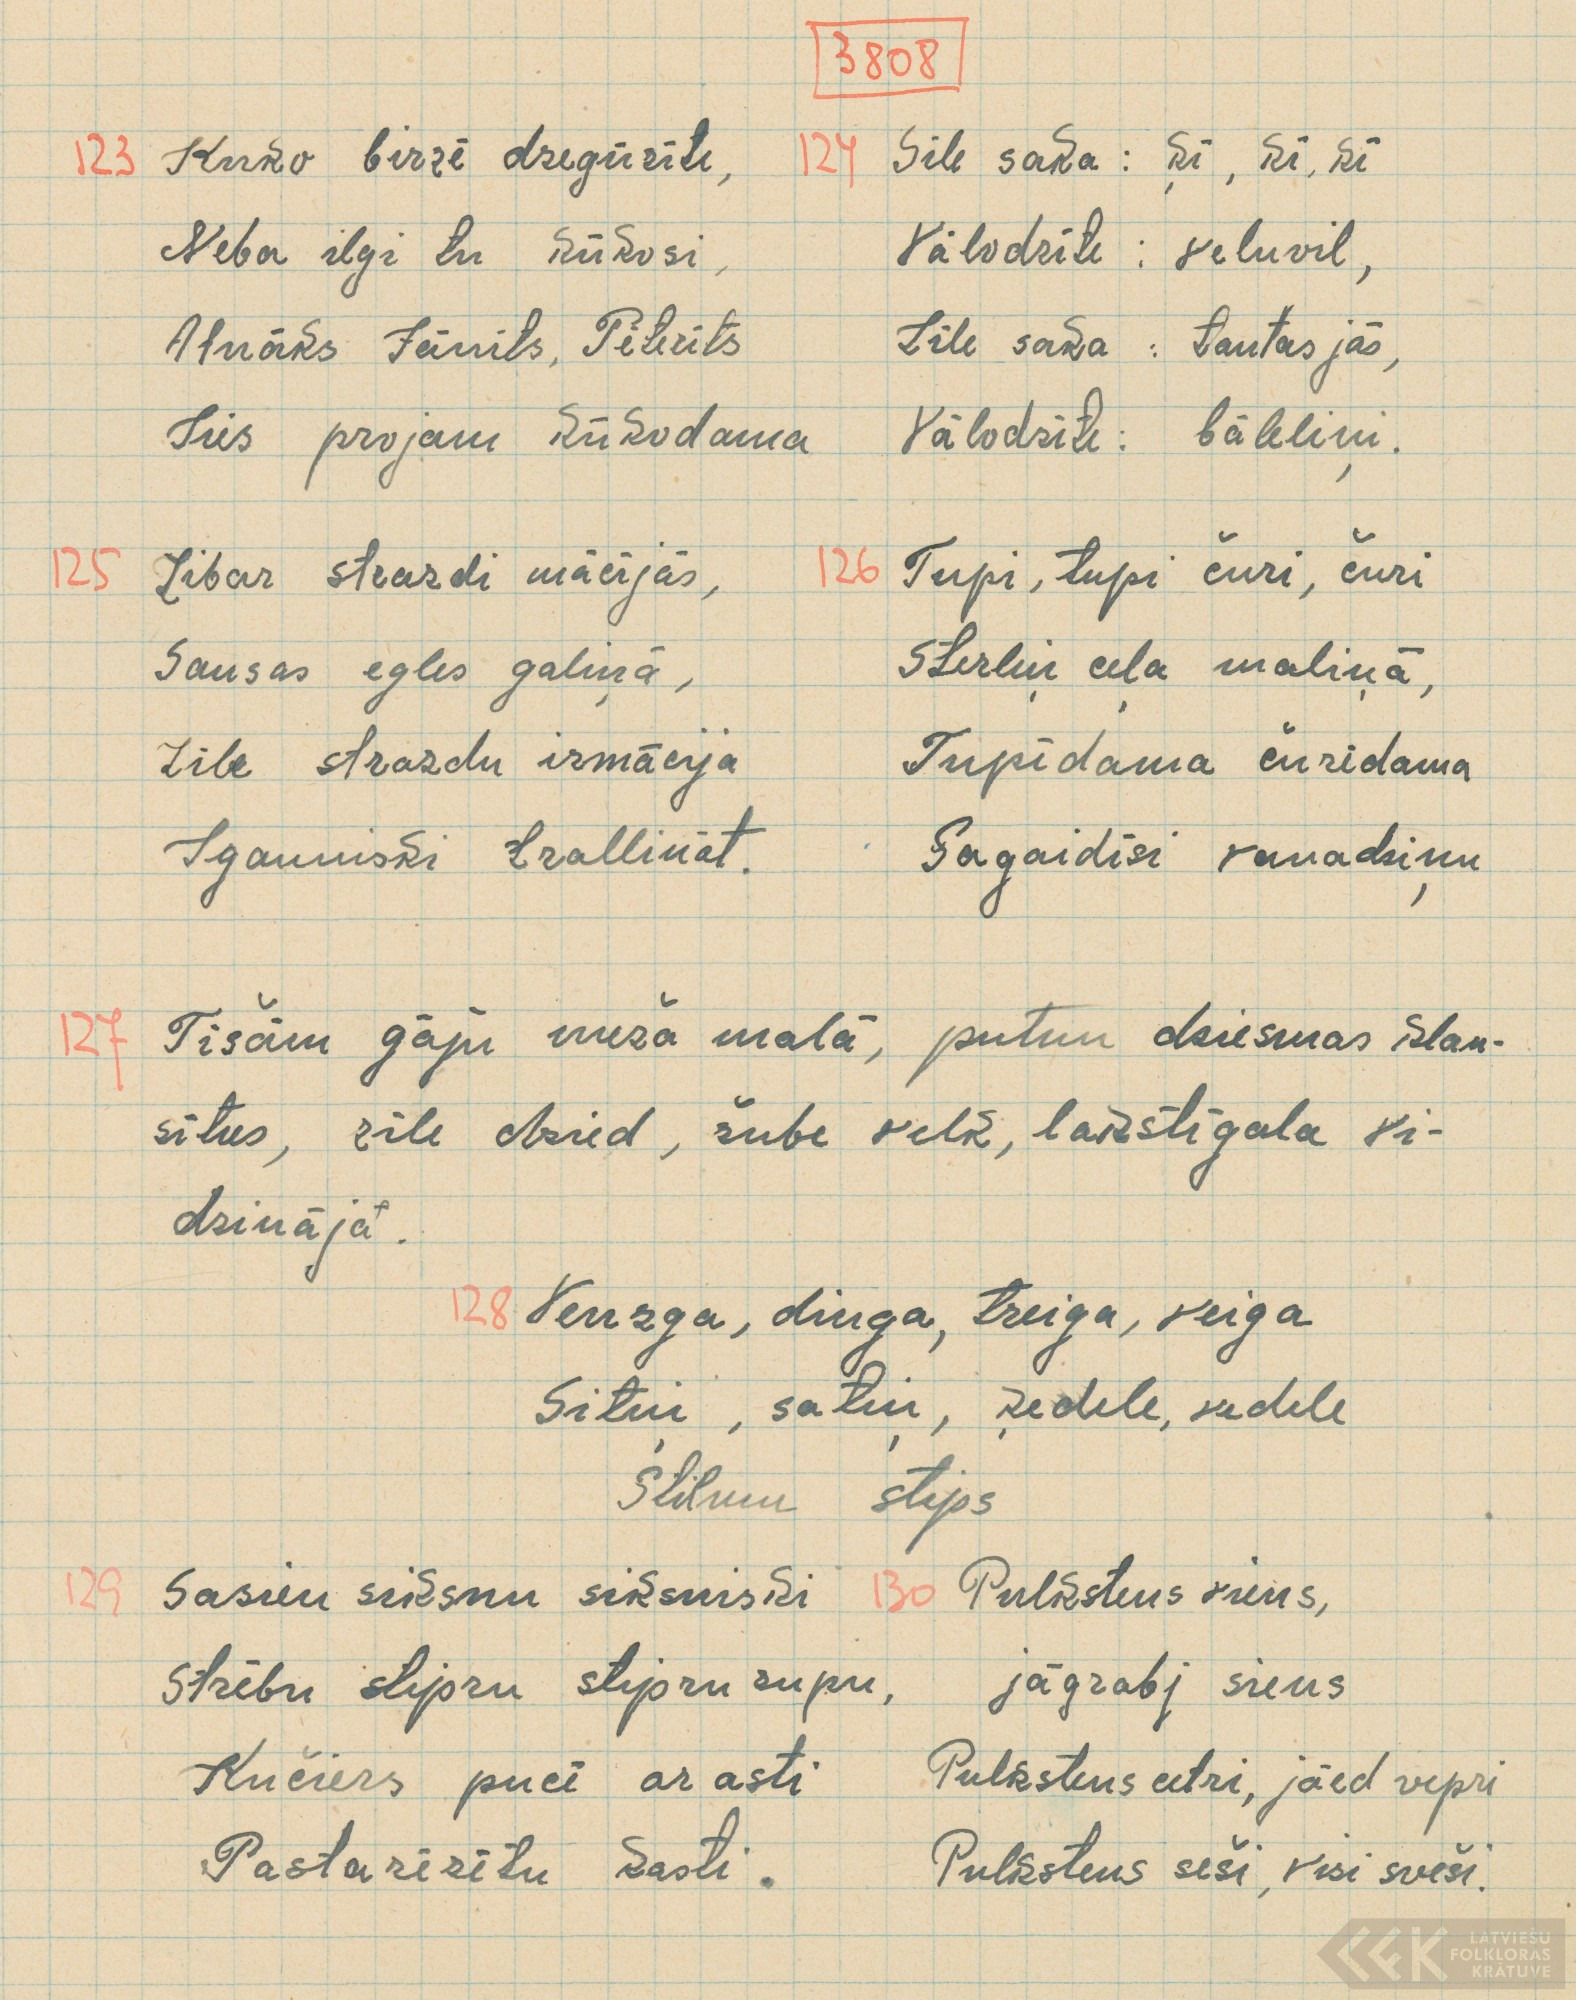 3808
123 Kuko birzē dzegūzīte,
Neba ilgi tu kūkosi,
Atnāks Jānits, Pēterīts
Ties projam kūkodama
124 Sīle saka: ķī, kī, kī
Vālodzīte: veluvil,
Zīle saka: tautas jās,
Vālodzīte: bāleliņi.
125 Zibar strazdi mācījās,
Sausas egles galiņā,
Zīle strazdu izmācīja
Igauniski trallināt.
126 Tupi, tupi čuri, čuri
Sterliņ ceļa maliņā,
Tupīdama čurīdama
Sagaidīsi vanadziņu
127 Tīšām gāju meža malā, putnu dziesmas klau-
sītes, zīle dzied, žube velk, lakstīgala vi-
dzināja.
128 Venzga, dinga, treiga, veiga
Sitiņ, satiņ, ķedele, vedele
Stilmu stips
129 Sasien siksnu siksniski
Strēbu stipru stipru zupu,
Kučiers pucē ar asti
Pastarīzītu kasti.
130 Pulkstens viens,
jāgrābj siens
Pulkstens cetri, jāed vepri
Pulkstens seši, visi sveši.
LATVIEŠU
FOLKLORAS
KRĀTUVE